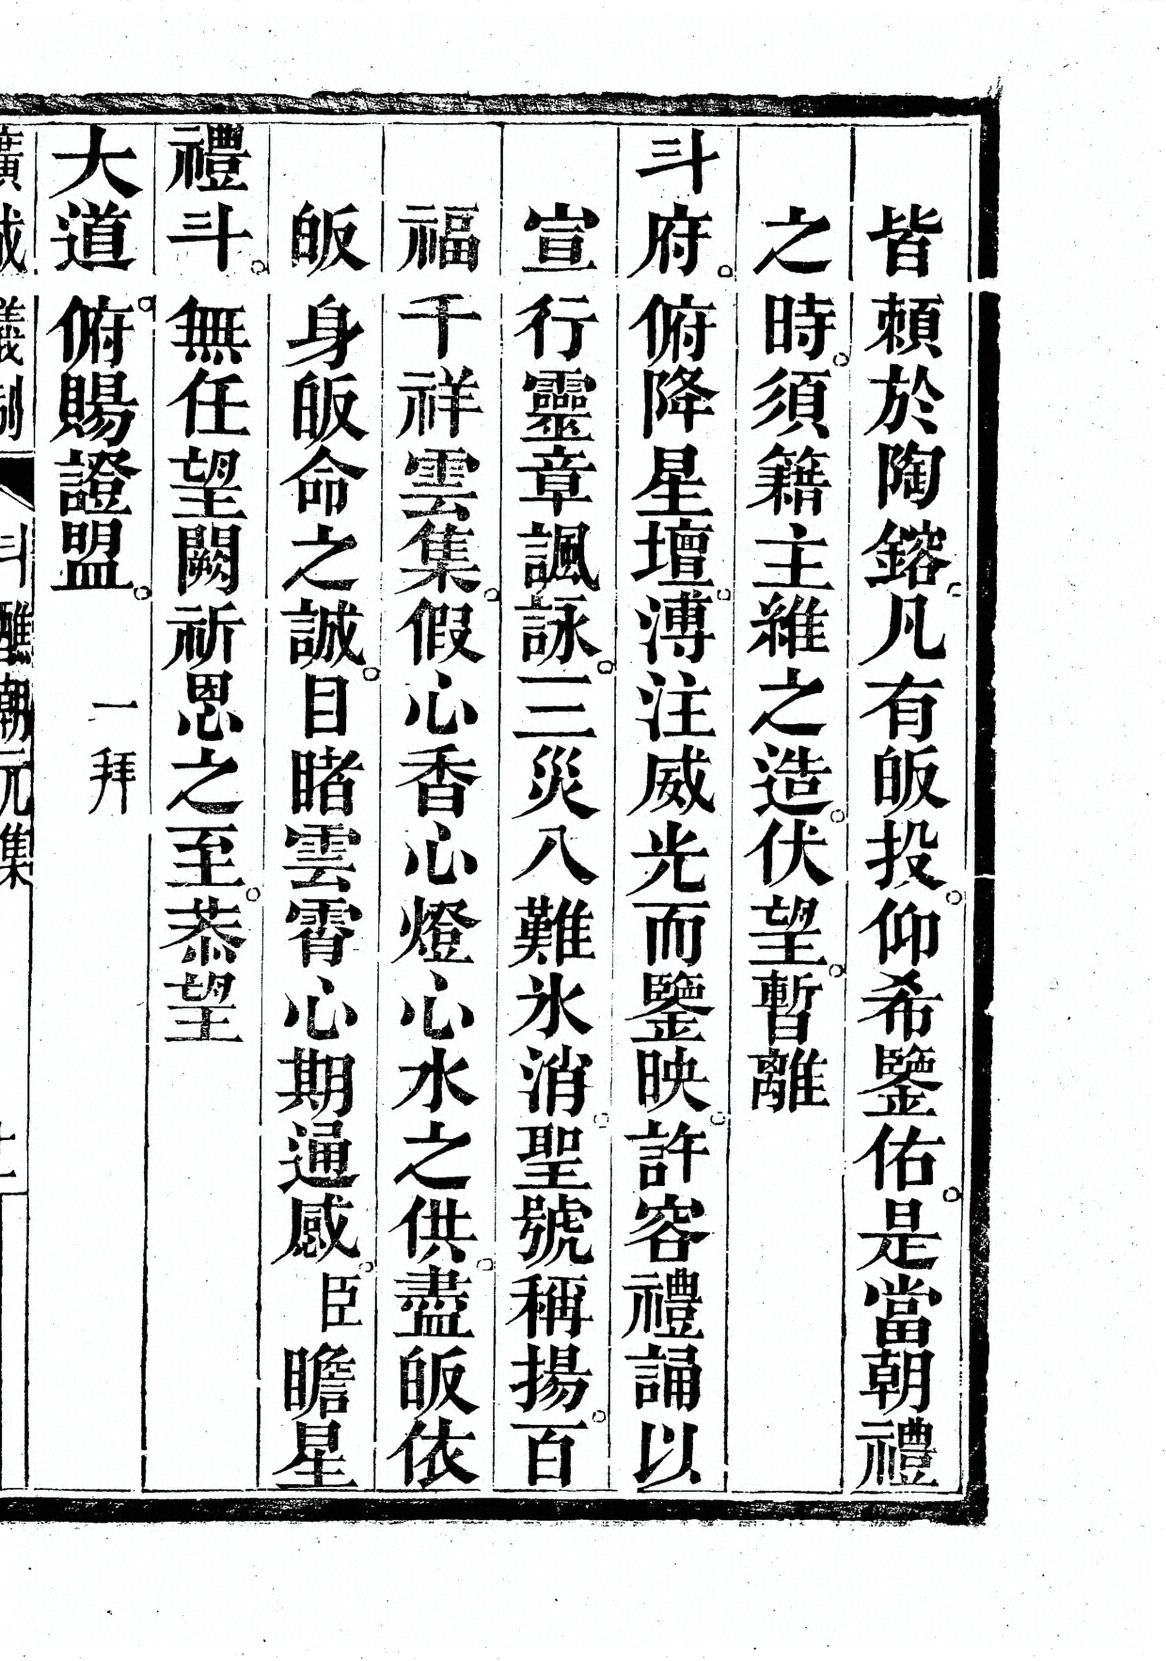 皆頼於陶鎔。凡有皈投。仰希鑒佑。是當朝禮
之時。須籍主維之造。伏望。暫離
斗府。俯降星壇。溥注威光而鑒映。許容禮誦以
宣行靈章諷詠。三災八難氷消。聖號稱揚。百
福千祥雲集。假心香心燈心水之供。盡皈依
皈身皈命之誠。目睹雲霄心期通感。臣瞻星
禮斗。無任望闕祈恩之至。恭望
大道。俯賜證盟。一拜
廣成儀制 斗醮朝元集